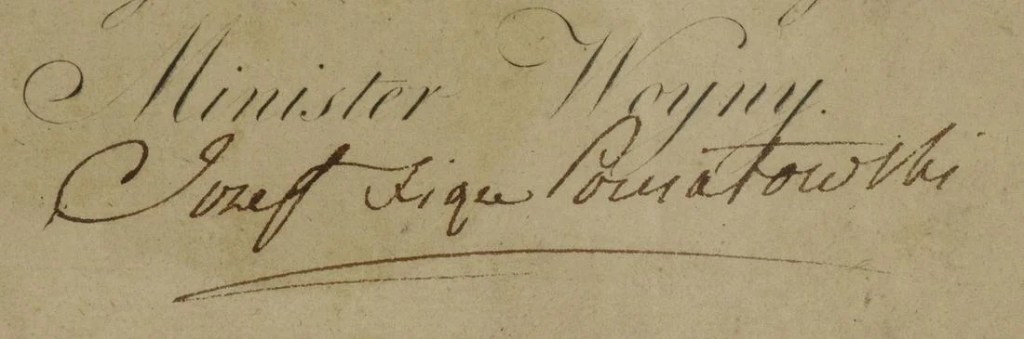 Minister Woyny.
Jozeff Xiąze Poniatowski